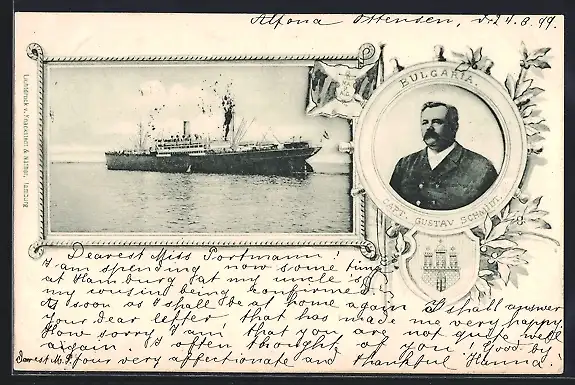 Altona Ottensen, d. 24. 3. 99.
BULGARIA.
CAPT. GUSTAV SCHMIDT.
Lichtdruck v. Knackstedt & Näther, Hamburg
Dearest Miss Portmann!
I am spending now some time
at Hamburg at my uncle is
my cousin being confirmed.
As soon as I shall be at home again I shall answer
your dear letter that has made me very happy.
How sorry I am that you are not quite well
again. I often thought of you. Good by
dearest M. P. Your very affectionate and thankful Hanna.